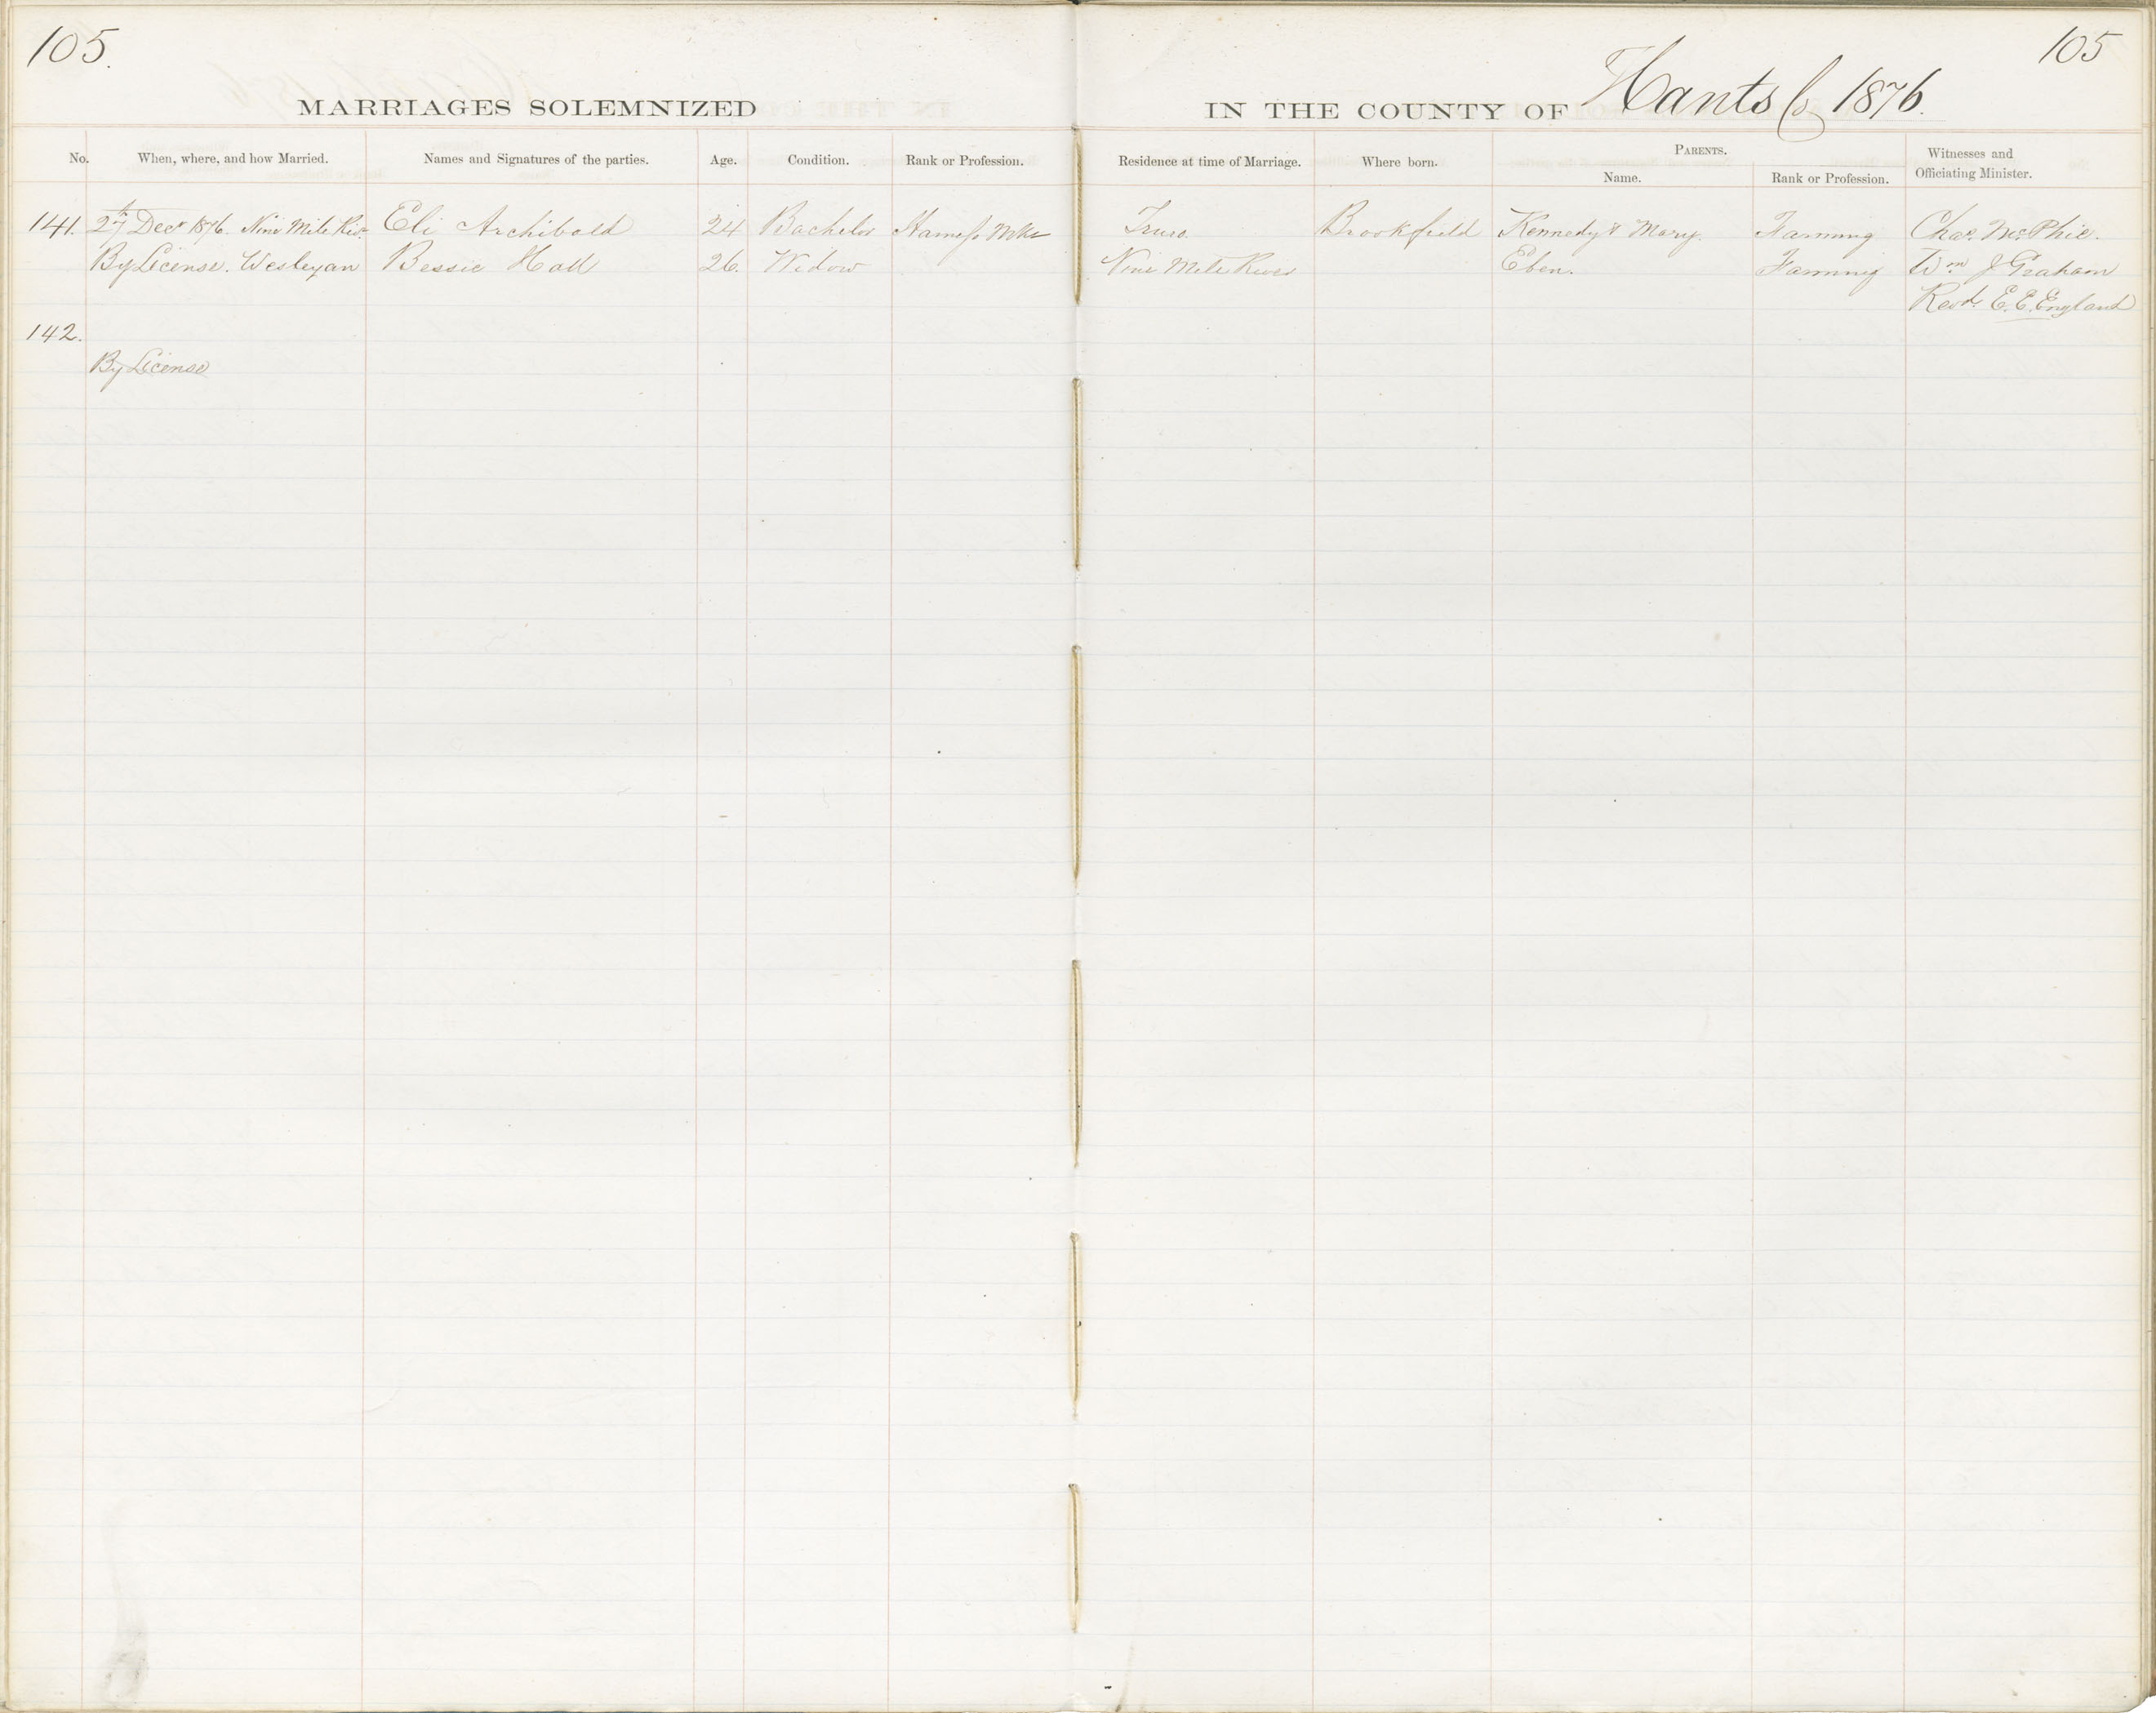 105.
105
MARRIAGES SOLEMNIZED
IN THE COUNTY OF Hants Co 1876.
No. When, where, and how Married. Names and Signatures of the parties. Age. Condition. Rank or Profession. Residence at time of Marriage. Where born. PARENTS. Name. Rank or Profession. Witnesses and Officiating Minister.
141. 27th Decr 1876. Nine Mile Rivr Eli Archibald 24 Bachelor Harness Mkr Truro. Brookfield Kennedy & Mary. Farming Chas. McPhie.
By License. Wesleyan Bessie Hall 26. Widow Nine Mile River Eben. Farming Wm J Graham
Revd. E. E. England
142.
By License